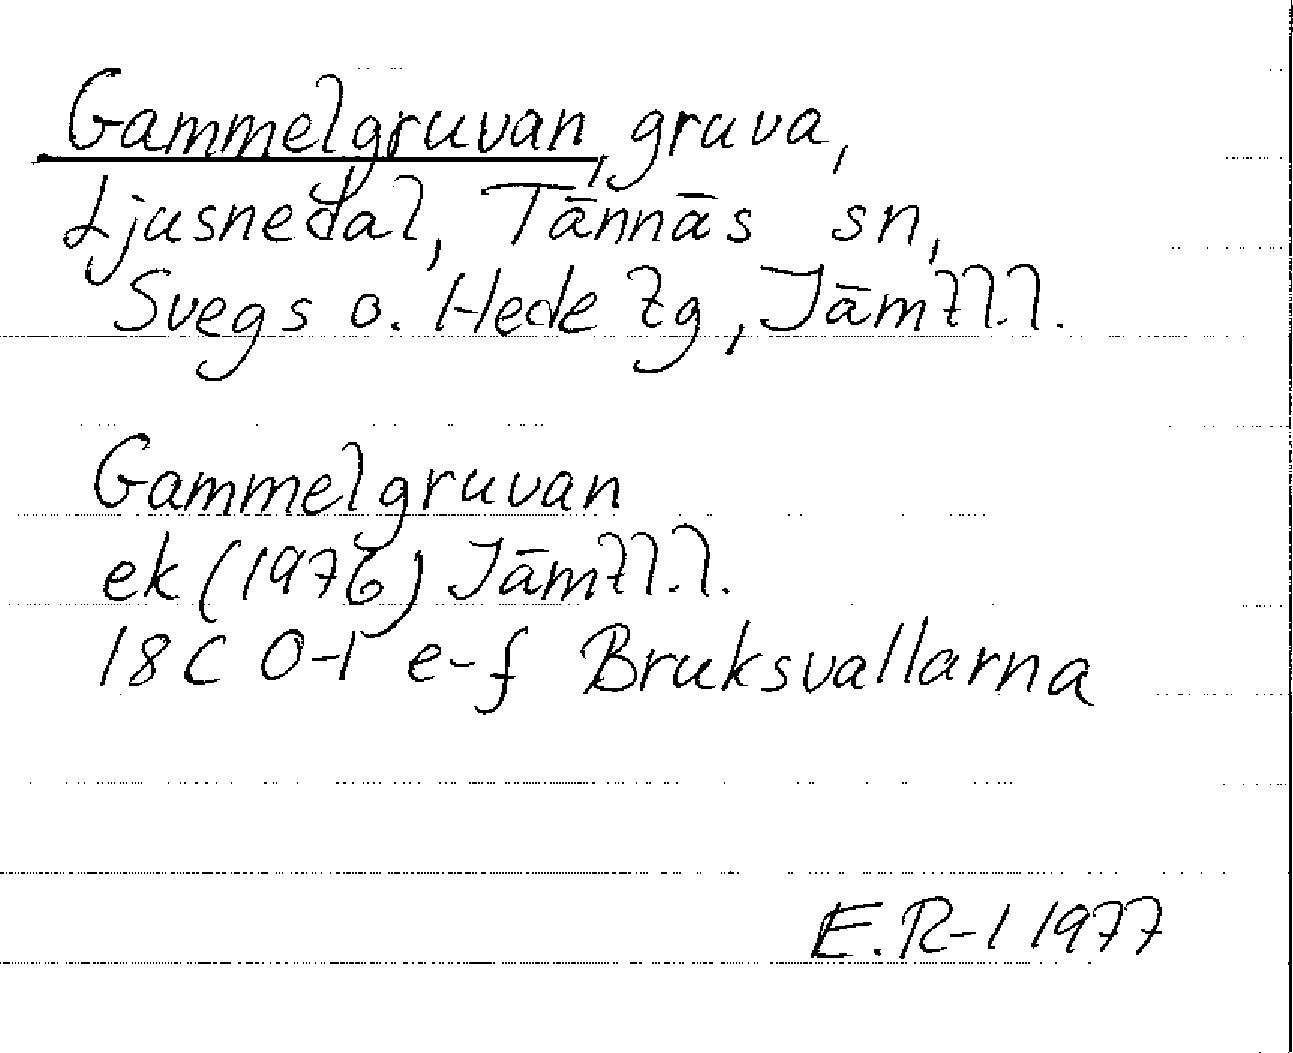 Gammelgruvan, gruva,
Ljusnedal, Tännäs sn,
Svegs o. Hede tg, Jämtl.l.
Gammelgruvan
ek (1976) Jämtl.l.
18C 0-1 e-f Bruksvallarna
E.R-l 1977